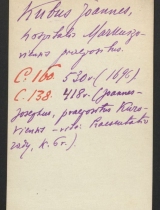 Kubus Joannes,
hospitalis Markuszo-
viensis praepositus.
C. 160. 530r. (1695.)
C. 138. 418r. (Joannes-
Josephus, praepositus Kuro-
viensis
rady, k. 6r.)